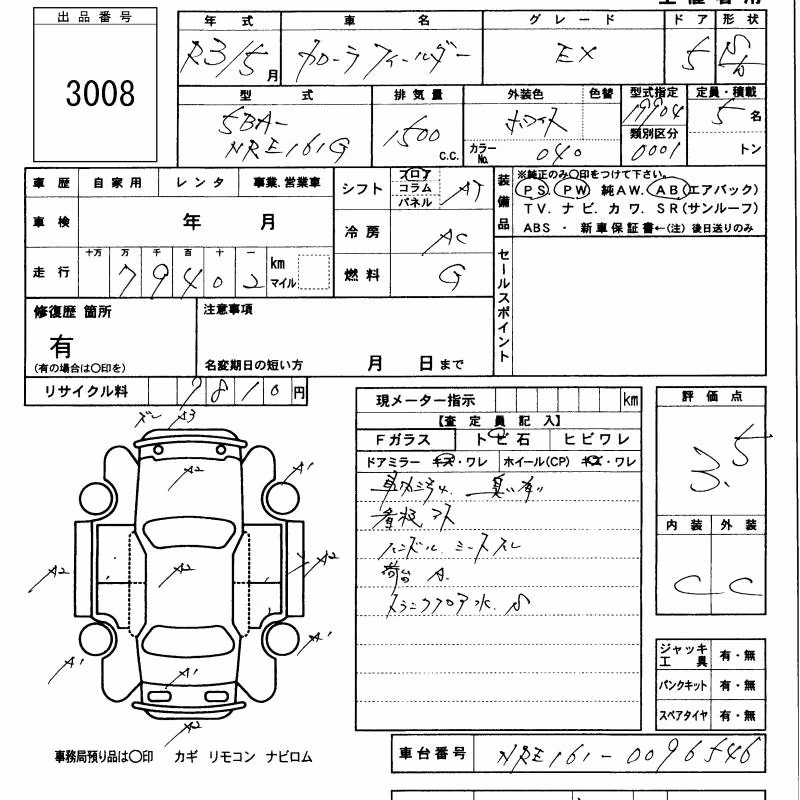 出品番号 3008
年式 車名 グレード ドア 形状
R3/5月 カローラフィールダー EX 5
型式 排気量 外装色 色替 型式指定 定員・積載
5BA-NRE161G 1500 c.c. ホワイト カラーNo. 040 19904 5名
類別区分 0001 トン
車歴 自家用 レンタ 事業.営業車
車検 年 月
走行 十万 万 千 百 十 一 km マイル
79402
シフト フロア コラム パネル AT
冷房 AC
燃料 G
装備品 ※純正のみ○印をつけて下さい。
PS PW 純AW. AB(エアバック)
TV. ナビ. カワ. SR(サンルーフ)
ABS ・ 新車保証書←(注) 後日送りのみ
セールスポイント
修復歴 箇所
有
(有の場合は○印を)
注意事項
名変期日の短い方 月 日まで
リサイクル料 7810円
現メーター指示 km
【査定員記入】
Fガラス トビ石 ヒビワレ
ドアミラー キズ・ワレ ホイール(CP) キズ・ワレ
車内汚れ 臭い有
看板アト
ハンドル シースレ
荷台 A.
評価点
3.5
内装 外装
C C
A3
A2
A1
A1
A2
A2
A2
A1
A1
A1
A2
ジャッキ工具 有・無
パンクキット 有・無
スペアタイヤ 有・無
事務局預り品は○印 カギ リモコン ナビロム
車台番号 NRE161-0096546